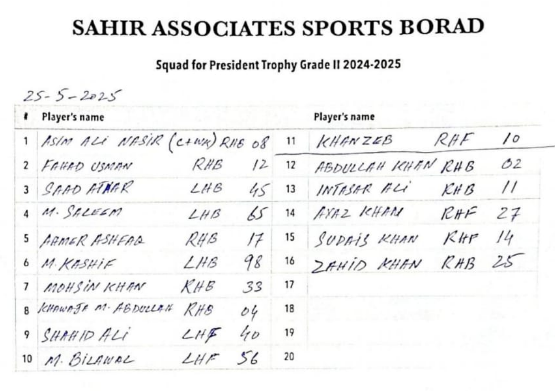 SAHIR ASSOCIATES SPORTS BORAD
Squad for President Trophy Grade II 2024-2025
25-5-2025
# Player's name
1 ASIM ALI NASIR (C+WK) RHB 08
2 FAHAD USMAN RHB 12
3 SAAD ATHAR LHB 45
4 M. SALEEM LHB 65
5 AAMER ASHFAQ RHB 17
6 M. KASHIF LHB 98
7 MOHSIN KHAN RHB 33
8 KHAWAJA M. ABDULLAH RHB 04
9 SHAHID ALI LHF 40
10 M. BILAWAL LHF 56
Player's name
11 KHANZEB RHF 10
12 ABDULLAH KHAN RHB 02
13 INTASAR ALI RHB 11
14 AYAZ KHAN RHF 27
15 SUDAIS KHAN RHF 14
16 ZAHID KHAN RHB 25
17
18
19
20